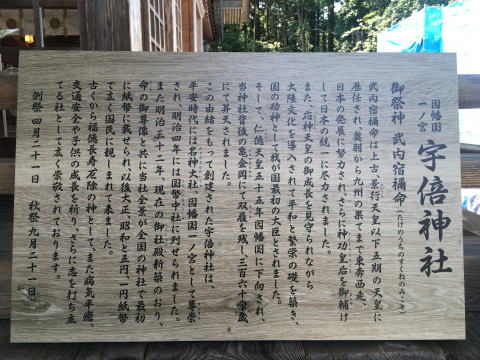 因幡國
一ノ宮
宇倍神社
御祭神 武内宿禰命
(たけのうちのすくねのみこと)
武内宿禰命は上古、景行天皇以下五期の天皇に
歴任され奥羽から九州の果てまで東奔西走、
日本の発展に努力され、さらに神功皇后を御輔け
して日本の統一に尽力されました。
また、應神天皇の御成長を見守られながら
大陸文化を導入されて平和と繁栄の礎を築き、
国の功神として我が国最初の大臣とされました。
そして、仁徳天皇五十五年因幡国に下向され、
当神社背後の亀金岡にて双履を残し三百六十余歳
にて昇天されました。
この由緒をもって創建された宇倍神社は、
平安時代には名神大社・因幡国一ノ宮として尊崇
され、明治四年には国幣中社に列せられました。
また明治三十二年、現在の御社殿新築のおり、
命の御尊像と共に当社全景が全国の神社で最初
に紙幣に載せられ、以後大正、昭和と五円、一円の紙幣
で広く国民に親しまれて来ました。
古くから福徳長寿厄除の神として、また病気平癒、
交通安全や子供の成長を祈り、さらに志を打ち立
てる社として広く崇敬されております。
例祭 四月二十一日 秋祭 九月二十一日